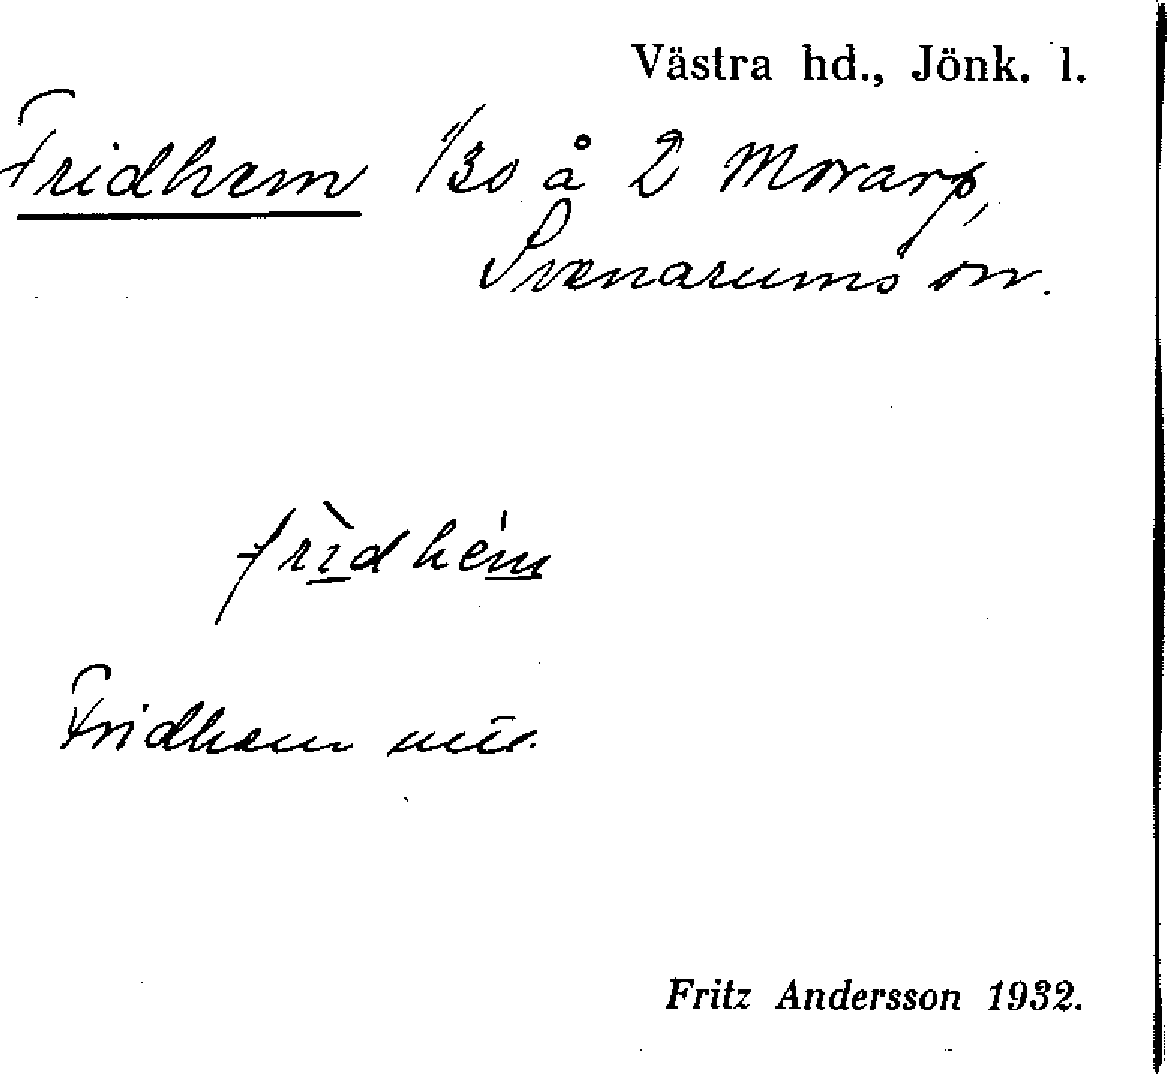 Västra hd., Jönk. l.
Fridhem 1/30 å 2 Morarp,
Svenarums sn.
frìdhém
Fridhem
Fritz Andersson 1932.